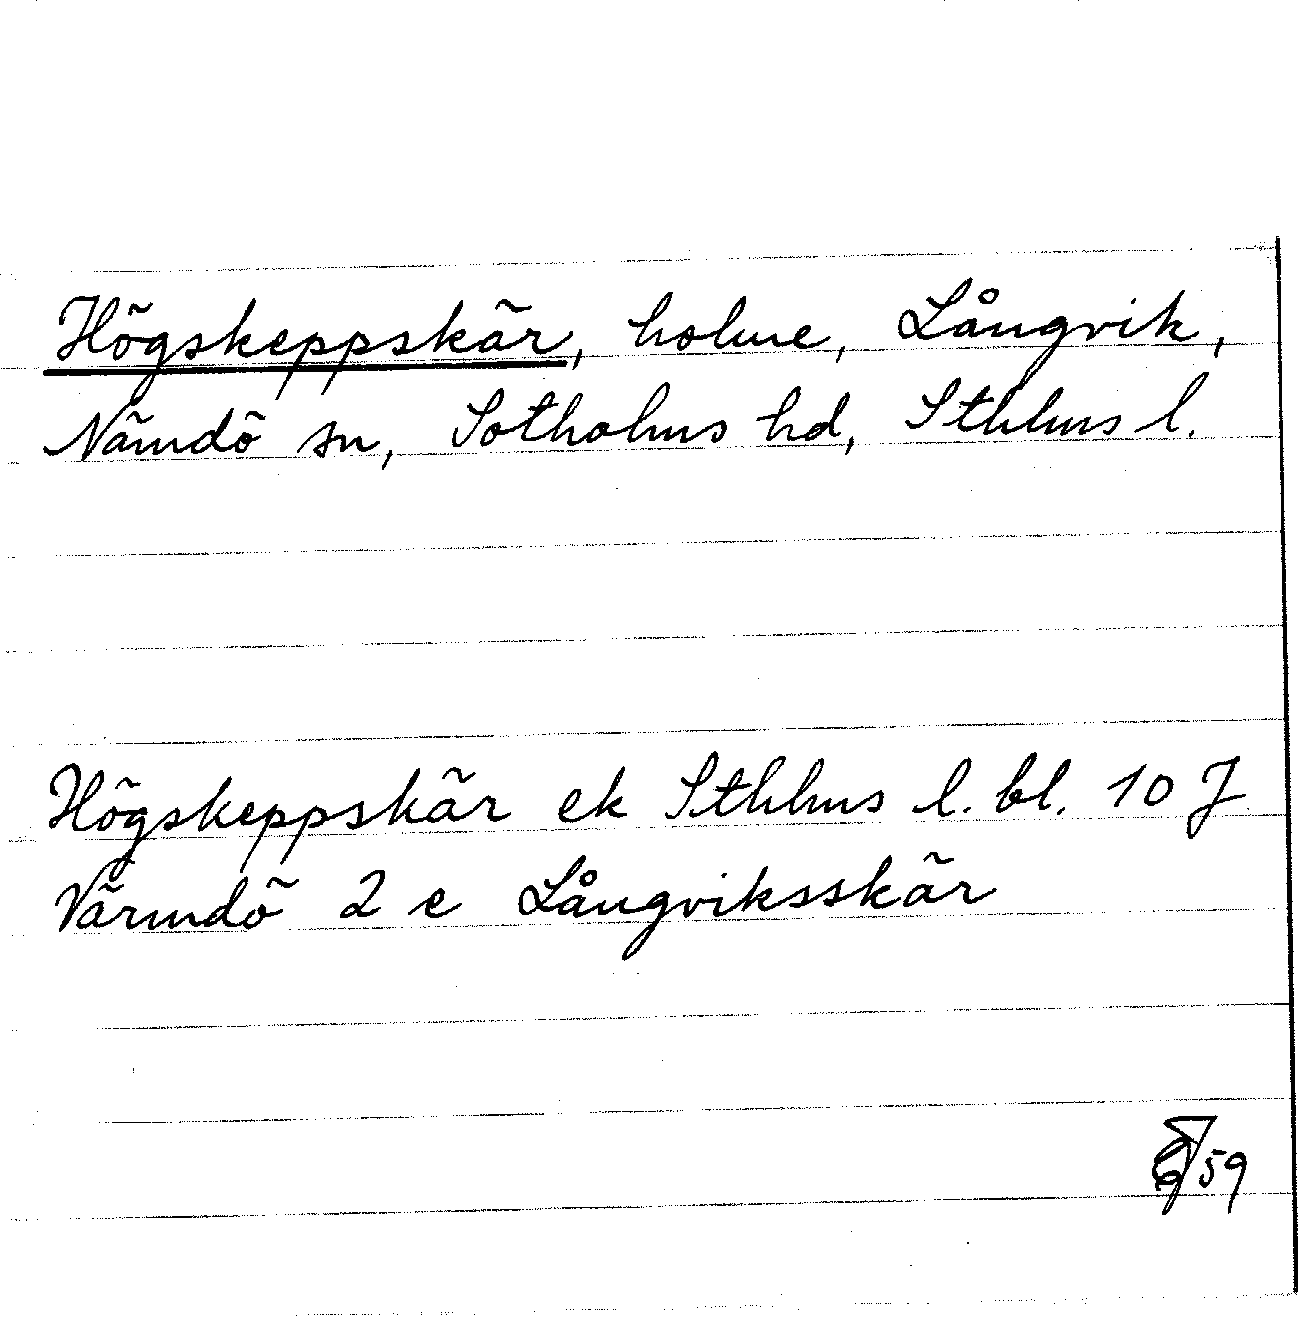 Högskeppskär, holme, Långvik,
Nämdö sn, Sotholms hd, Sthlms l.
Högskeppskär ek Sthlms l. bl. 10 J
Värmdö 2 e Långviksskär
59